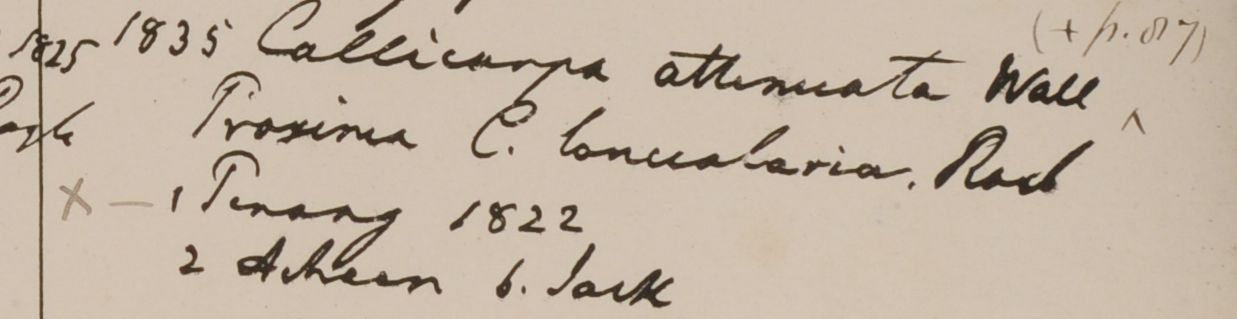 (+ p. 87)
1825 1835 Callicarpa attenuata Wall ^
Proxima C. lanceolaria. Roxb
x — 1 Penang 1822
2 Acheen G. Jack